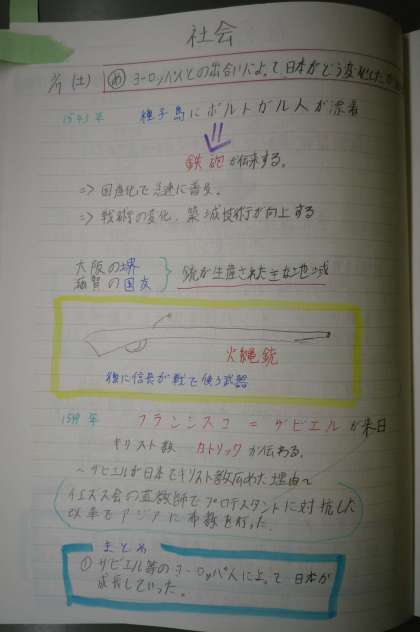 社会
(土) め ヨーロッパ人との出会いによって日本がどう変化したか
1543年 種子島にポルトガル人が漂着
鉄砲が伝来する。
⇒国産化で急速に普及。
⇒戦術の変化、築城技術が向上する
大阪の堺
滋賀の国友
銃が生産された主な地域
火縄銃
後に信長が戦で使う武器
1549年 フランシスコ=ザビエルが来日
キリスト教 カトリックが伝わる。
~ザビエルが日本でキリスト教広めた理由~
イエズス会の宣教師でプロテスタントに対抗した
以来でアジアに布教を行った。
まとめ
① ザビエル等のヨーロッパ人によって日本が
成長していった。